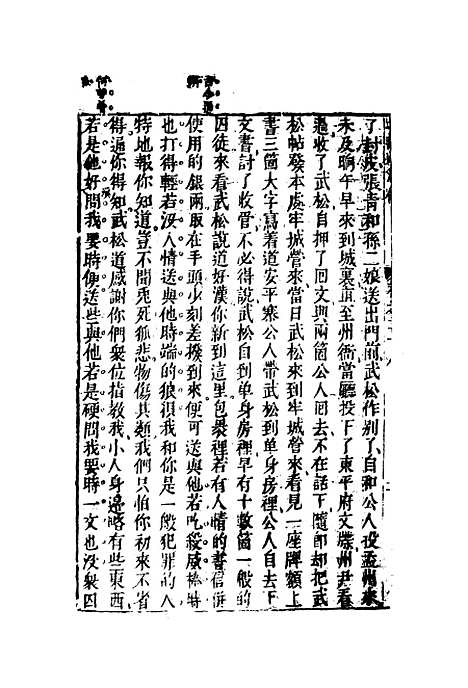 了封皮張青和孫二娘送出門前武松作別了自和公人投孟州來
未及晌午早來到城裏直至州衙當廳投下了東平府文牒州尹看
過收了武松自押了囘文與兩箇公人囘去不在話下隨卽却把武
松帖發本處牢城營來當日武松來到牢城營來看見一座牌額上
書三箇大字寫着道安平寨公人帶武松到单身房裡公人自去下
文書討了收管不必得說武松自到单身房裡早有十數箇一般的
囚徒來看武松說道好漢你新到這里包裹裡若有人情的書信倂
使用的銀兩取在手頭少刻差撥到來便可送與他若吃殺威棒時
也打得輕若没人情送與他時端的狼狽我和你是一般犯罪的人
特地報你知道豈不聞兎死狐悲物傷其類我們只怕你初來不省
得通你得知武松道感謝你們衆位指教我小人身邊略有些東西
若是他好問我要時便送些與他若是硬問我要時一文也没衆囚